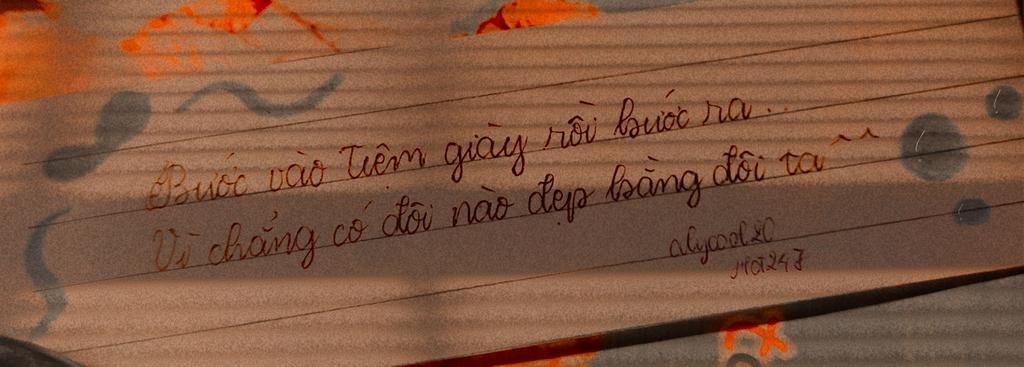 Bước vào Tiệm giày rồi bước ra...
Vì chẳng có đôi nào đẹp bằng đôi ta ^^